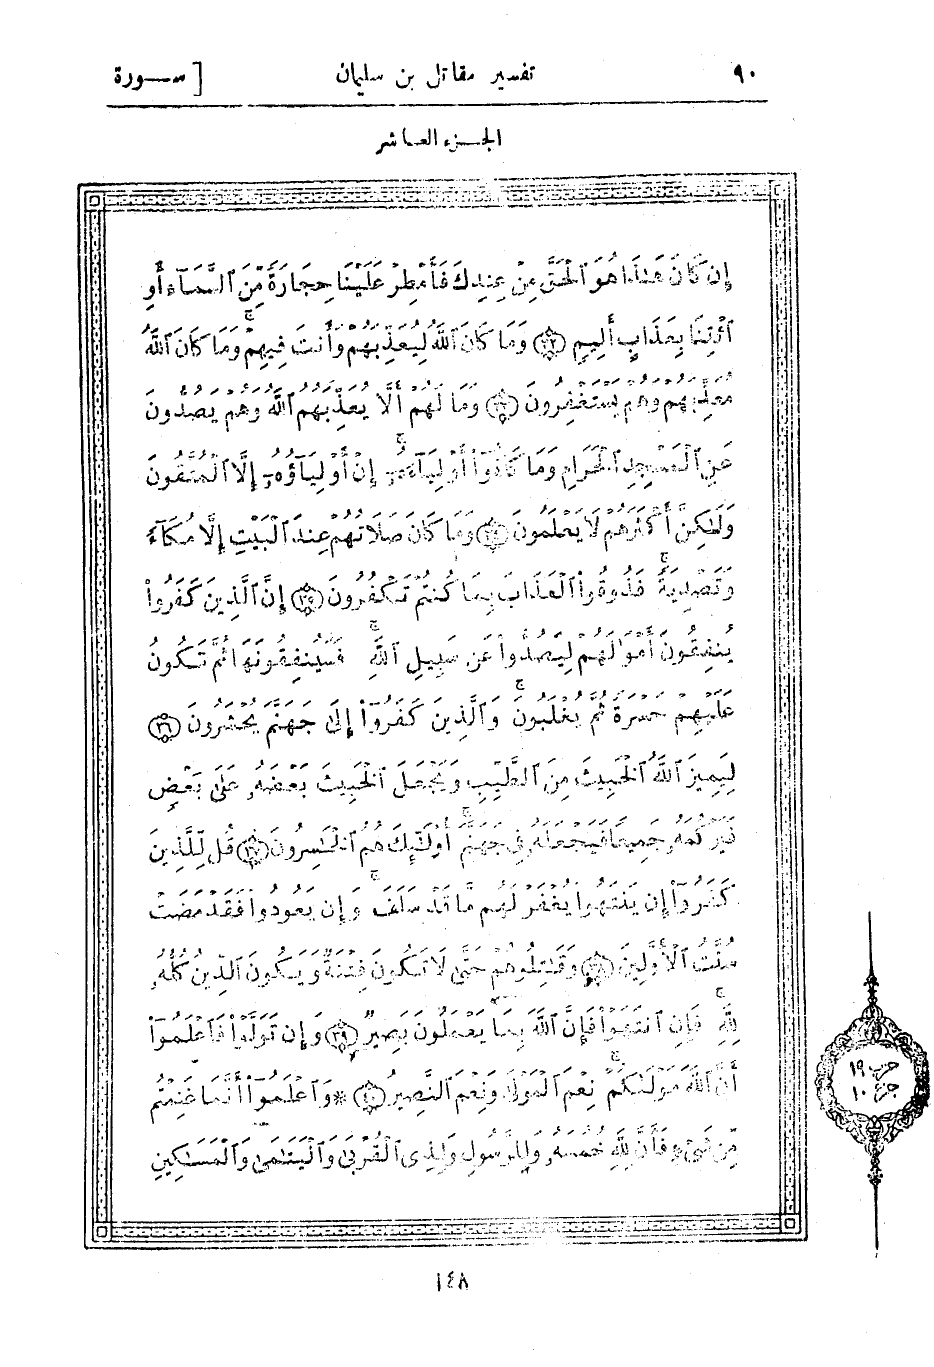 ٩٠ تفسير مقاتل بن سليمان [ ســورة
الجزء العاشر
إِن كَانَ هَٰذَا هُوَ ٱلْحَقَّ مِنْ عِندِكَ فَأَمْطِرْ عَلَيْنَا حِجَارَةً مِّنَ ٱلسَّمَآءِ أَوِ
ٱئْتِنَا بِعَذَابٍ أَلِيمٍ ﴿٣٢﴾ وَمَا كَانَ ٱللَّهُ لِيُعَذِّبَهُمْ وَأَنتَ فِيهِمْ ۚ وَمَا كَانَ ٱللَّهُ
مُعَذِّبَهُمْ وَهُمْ يَسْتَغْفِرُونَ ﴿٣٣﴾ وَمَا لَهُمْ أَلَّا يُعَذِّبَهُمُ ٱللَّهُ وَهُمْ يَصُدُّونَ
عَنِ ٱلْمَسْجِدِ ٱلْحَرَامِ وَمَا كَانُوٓا۟ أَوْلِيَآءَهُۥٓ ۚ إِنْ أَوْلِيَآؤُهُۥٓ إِلَّا ٱلْمُتَّقُونَ
وَلَٰكِنَّ أَكْثَرَهُمْ لَا يَعْلَمُونَ ﴿٣٤﴾ وَمَا كَانَ صَلَاتُهُمْ عِندَ ٱلْبَيْتِ إِلَّا مُكَآءً
وَتَصْدِيَةً ۚ فَذُوقُوا۟ ٱلْعَذَابَ بِمَا كُنتُمْ تَكْفُرُونَ ﴿٣٥﴾ إِنَّ ٱلَّذِينَ كَفَرُوا۟
يُنفِقُونَ أَمْوَٰلَهُمْ لِيَصُدُّوا۟ عَن سَبِيلِ ٱللَّهِ ۚ فَسَيُنفِقُونَهَا ثُمَّ تَكُونُ
عَلَيْهِمْ حَسْرَةً ثُمَّ يُغْلَبُونَ ۗ وَٱلَّذِينَ كَفَرُوٓا۟ إِلَىٰ جَهَنَّمَ يُحْشَرُونَ ﴿٣٦﴾
لِيَمِيزَ ٱللَّهُ ٱلْخَبِيثَ مِنَ ٱلطَّيِّبِ وَيَجْعَلَ ٱلْخَبِيثَ بَعْضَهُۥ عَلَىٰ بَعْضٍ
فَيَرْكُمَهُۥ جَمِيعًا فَيَجْعَلَهُۥ فِى جَهَنَّمَ ۚ أُو۟لَٰٓئِكَ هُمُ ٱلْخَٰسِرُونَ ﴿٣٧﴾ قُل لِّلَّذِينَ
كَفَرُوٓا۟ إِن يَنتَهُوا۟ يُغْفَرْ لَهُم مَّا قَدْ سَلَفَ ۚ وَإِن يَعُودُوا۟ فَقَدْ مَضَتْ
سُنَّتُ ٱلْأَوَّلِينَ ﴿٣٨﴾ وَقَٰتِلُوهُمْ حَتَّىٰ لَا تَكُونَ فِتْنَةٌ وَيَكُونَ ٱلدِّينُ كُلُّهُۥ
لِلَّهِ ۚ فَإِنِ ٱنتَهَوْا۟ فَإِنَّ ٱللَّهَ بِمَا يَعْمَلُونَ بَصِيرٌ ﴿٣٩﴾ وَإِن تَوَلَّوْا۟ فَٱعْلَمُوٓا۟
أَنَّ ٱللَّهَ مَوْلَىٰكُمْ ۚ نِعْمَ ٱلْمَوْلَىٰ وَنِعْمَ ٱلنَّصِيرُ ﴿٤٠﴾ * وَٱعْلَمُوٓا۟ أَنَّمَا غَنِمْتُم
مِّن شَىْءٍ فَأَنَّ لِلَّهِ خُمُسَهُۥ وَلِلرَّسُولِ وَلِذِى ٱلْقُرْبَىٰ وَٱلْيَتَٰمَىٰ وَٱلْمَسَٰكِينِ
حزب ١٩
جزء ١٠
١٤٨